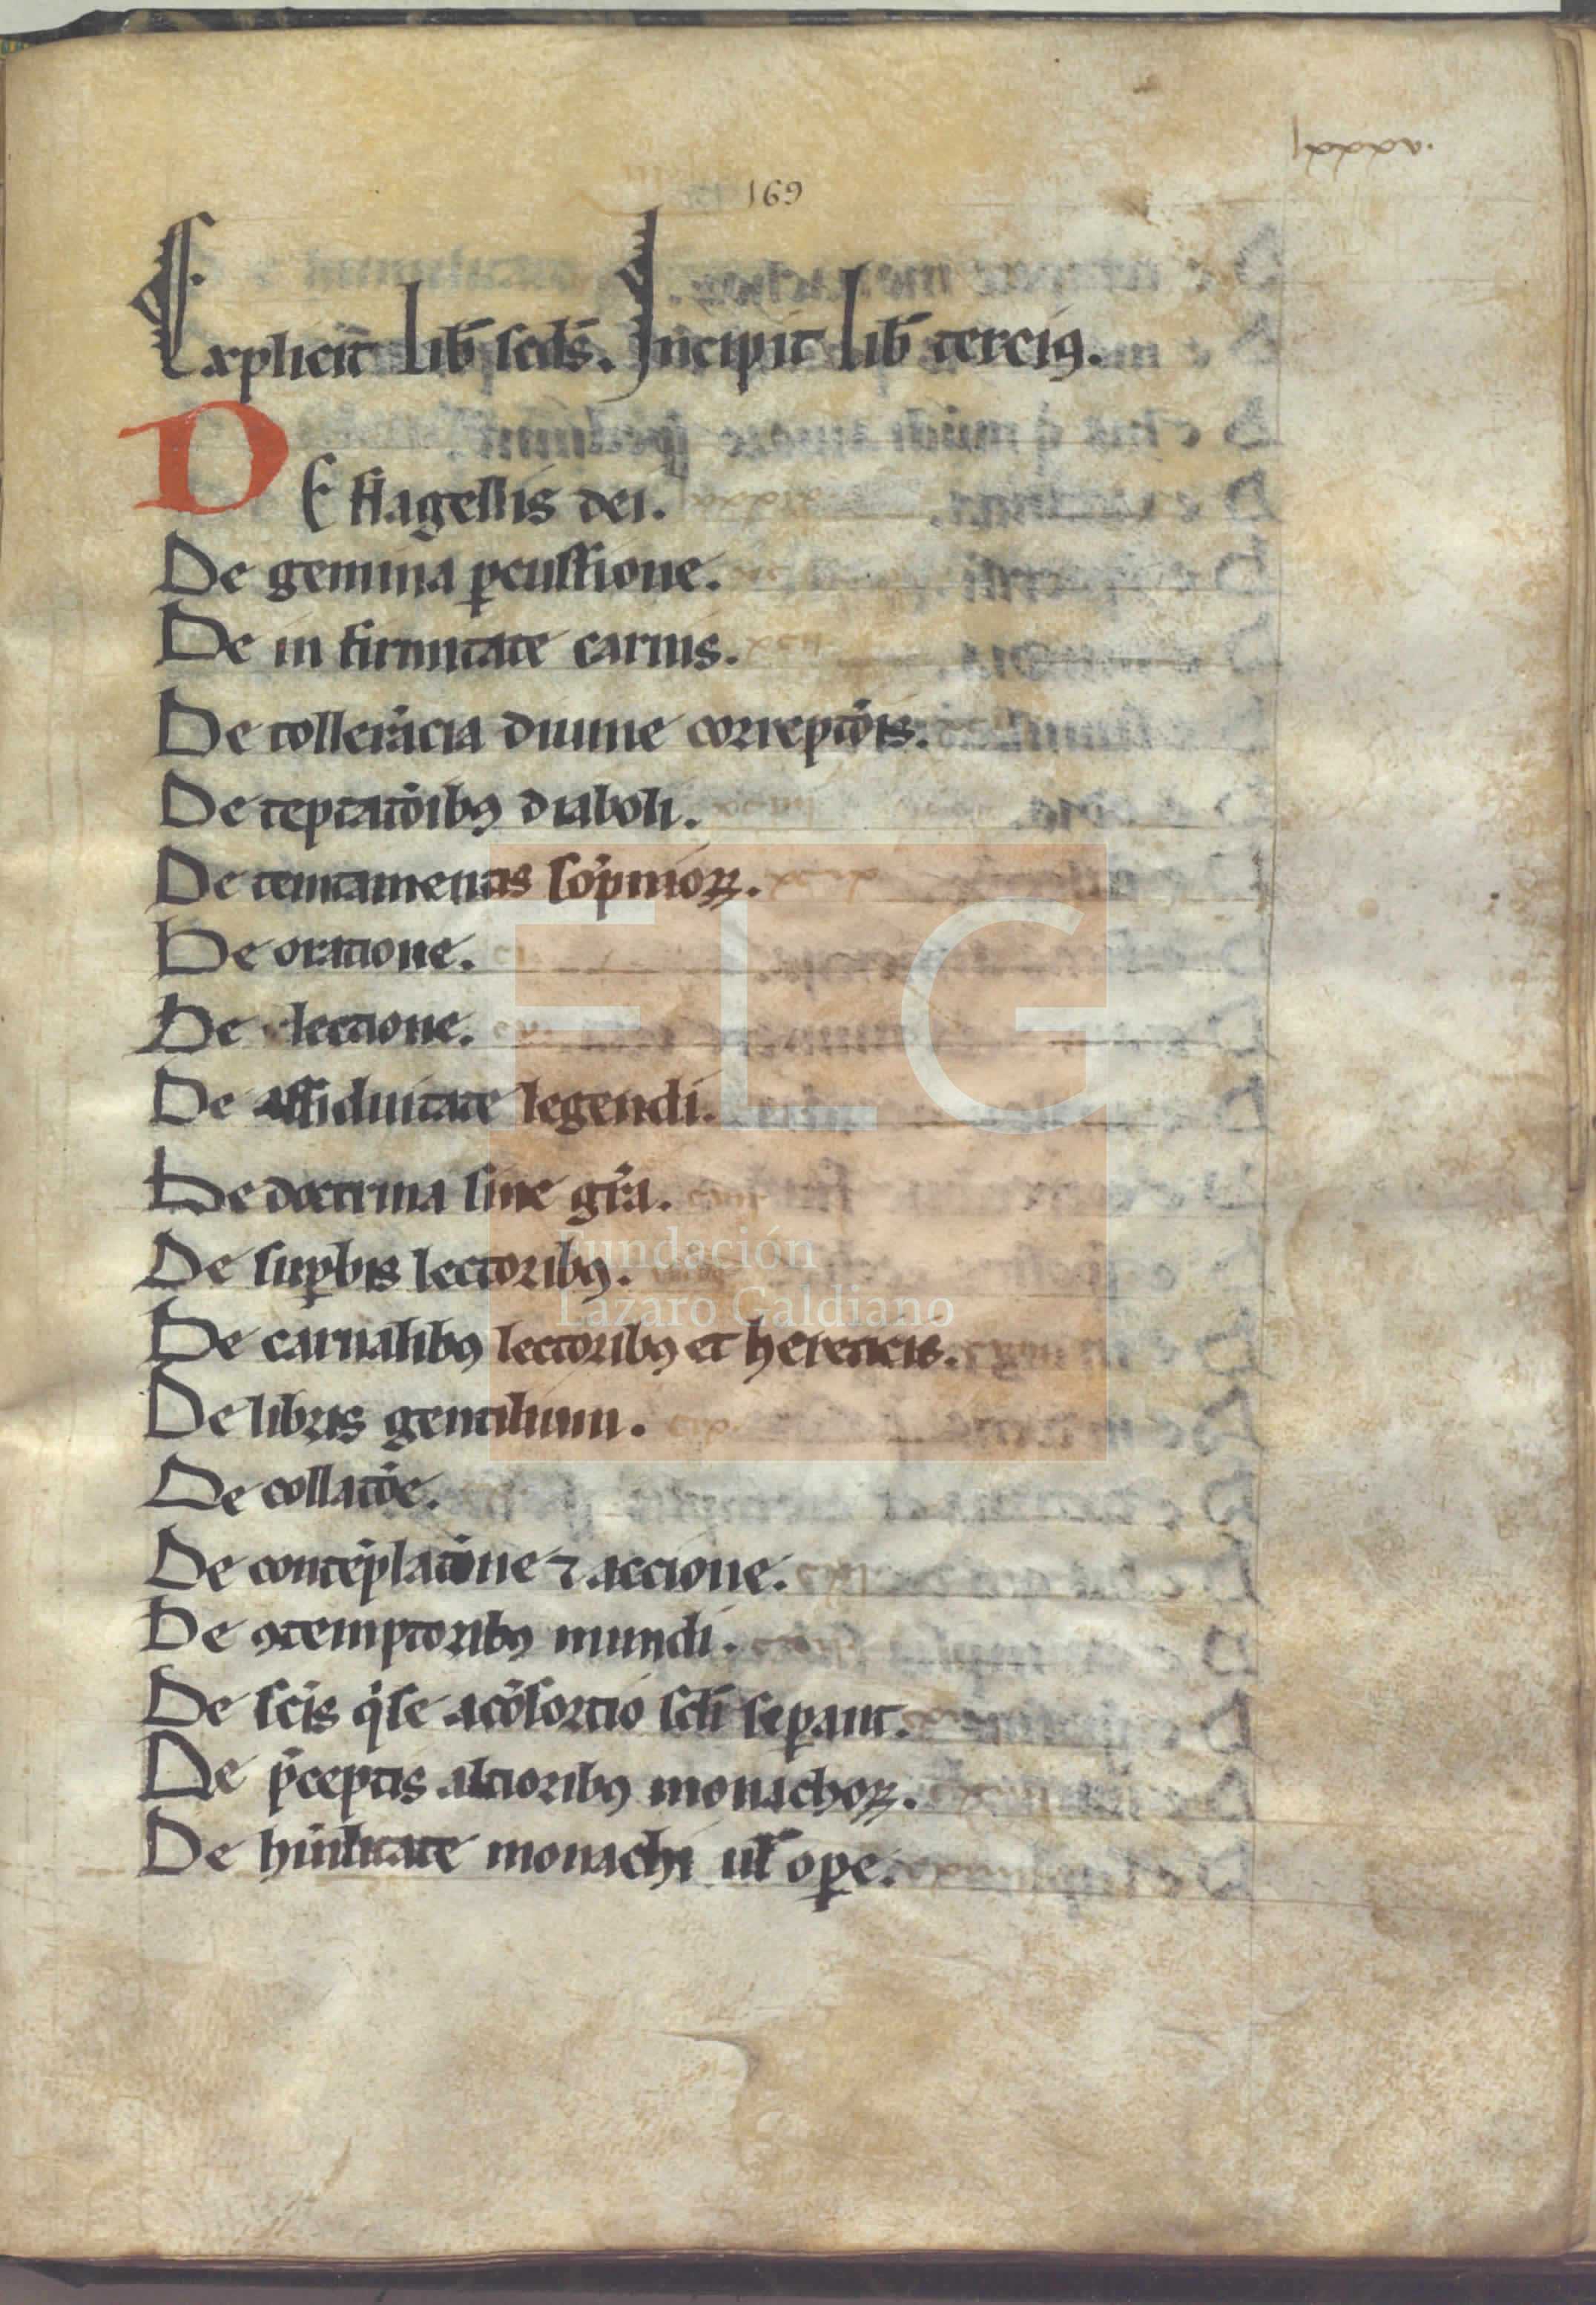 lxxxv.
169
Explicit̄ Lib̄ scd̄s. Incipit Lib̄ terciꝰ.
DE flagellis dei.
De gemina ꝑcussione.
De in firmitate carnis.
De tollerācia diuine correptōis.
De teptatōibꝰ diaboli.
De temtamentis sōpnioꝝ.
De oratione.
De lectione.
De assiduitate legendi.
De doctrina sine gr̄a.
De suꝑbis lectoribꝰ.
De carnalibꝰ lectoribꝰ et hereticis.
De libris gentilium.
De collatōe.
De contēplatōne ⁊ accione.
De ꝯtemptoribꝰ mundi.
De sc̄is q̇ se acōsortio scl̄i seꝑant.
De p̄ceptis altioribꝰ monachoꝝ.
De humilitate monachi ul̄ oꝑe.
FLG
Fundación
Lázaro Galdiano